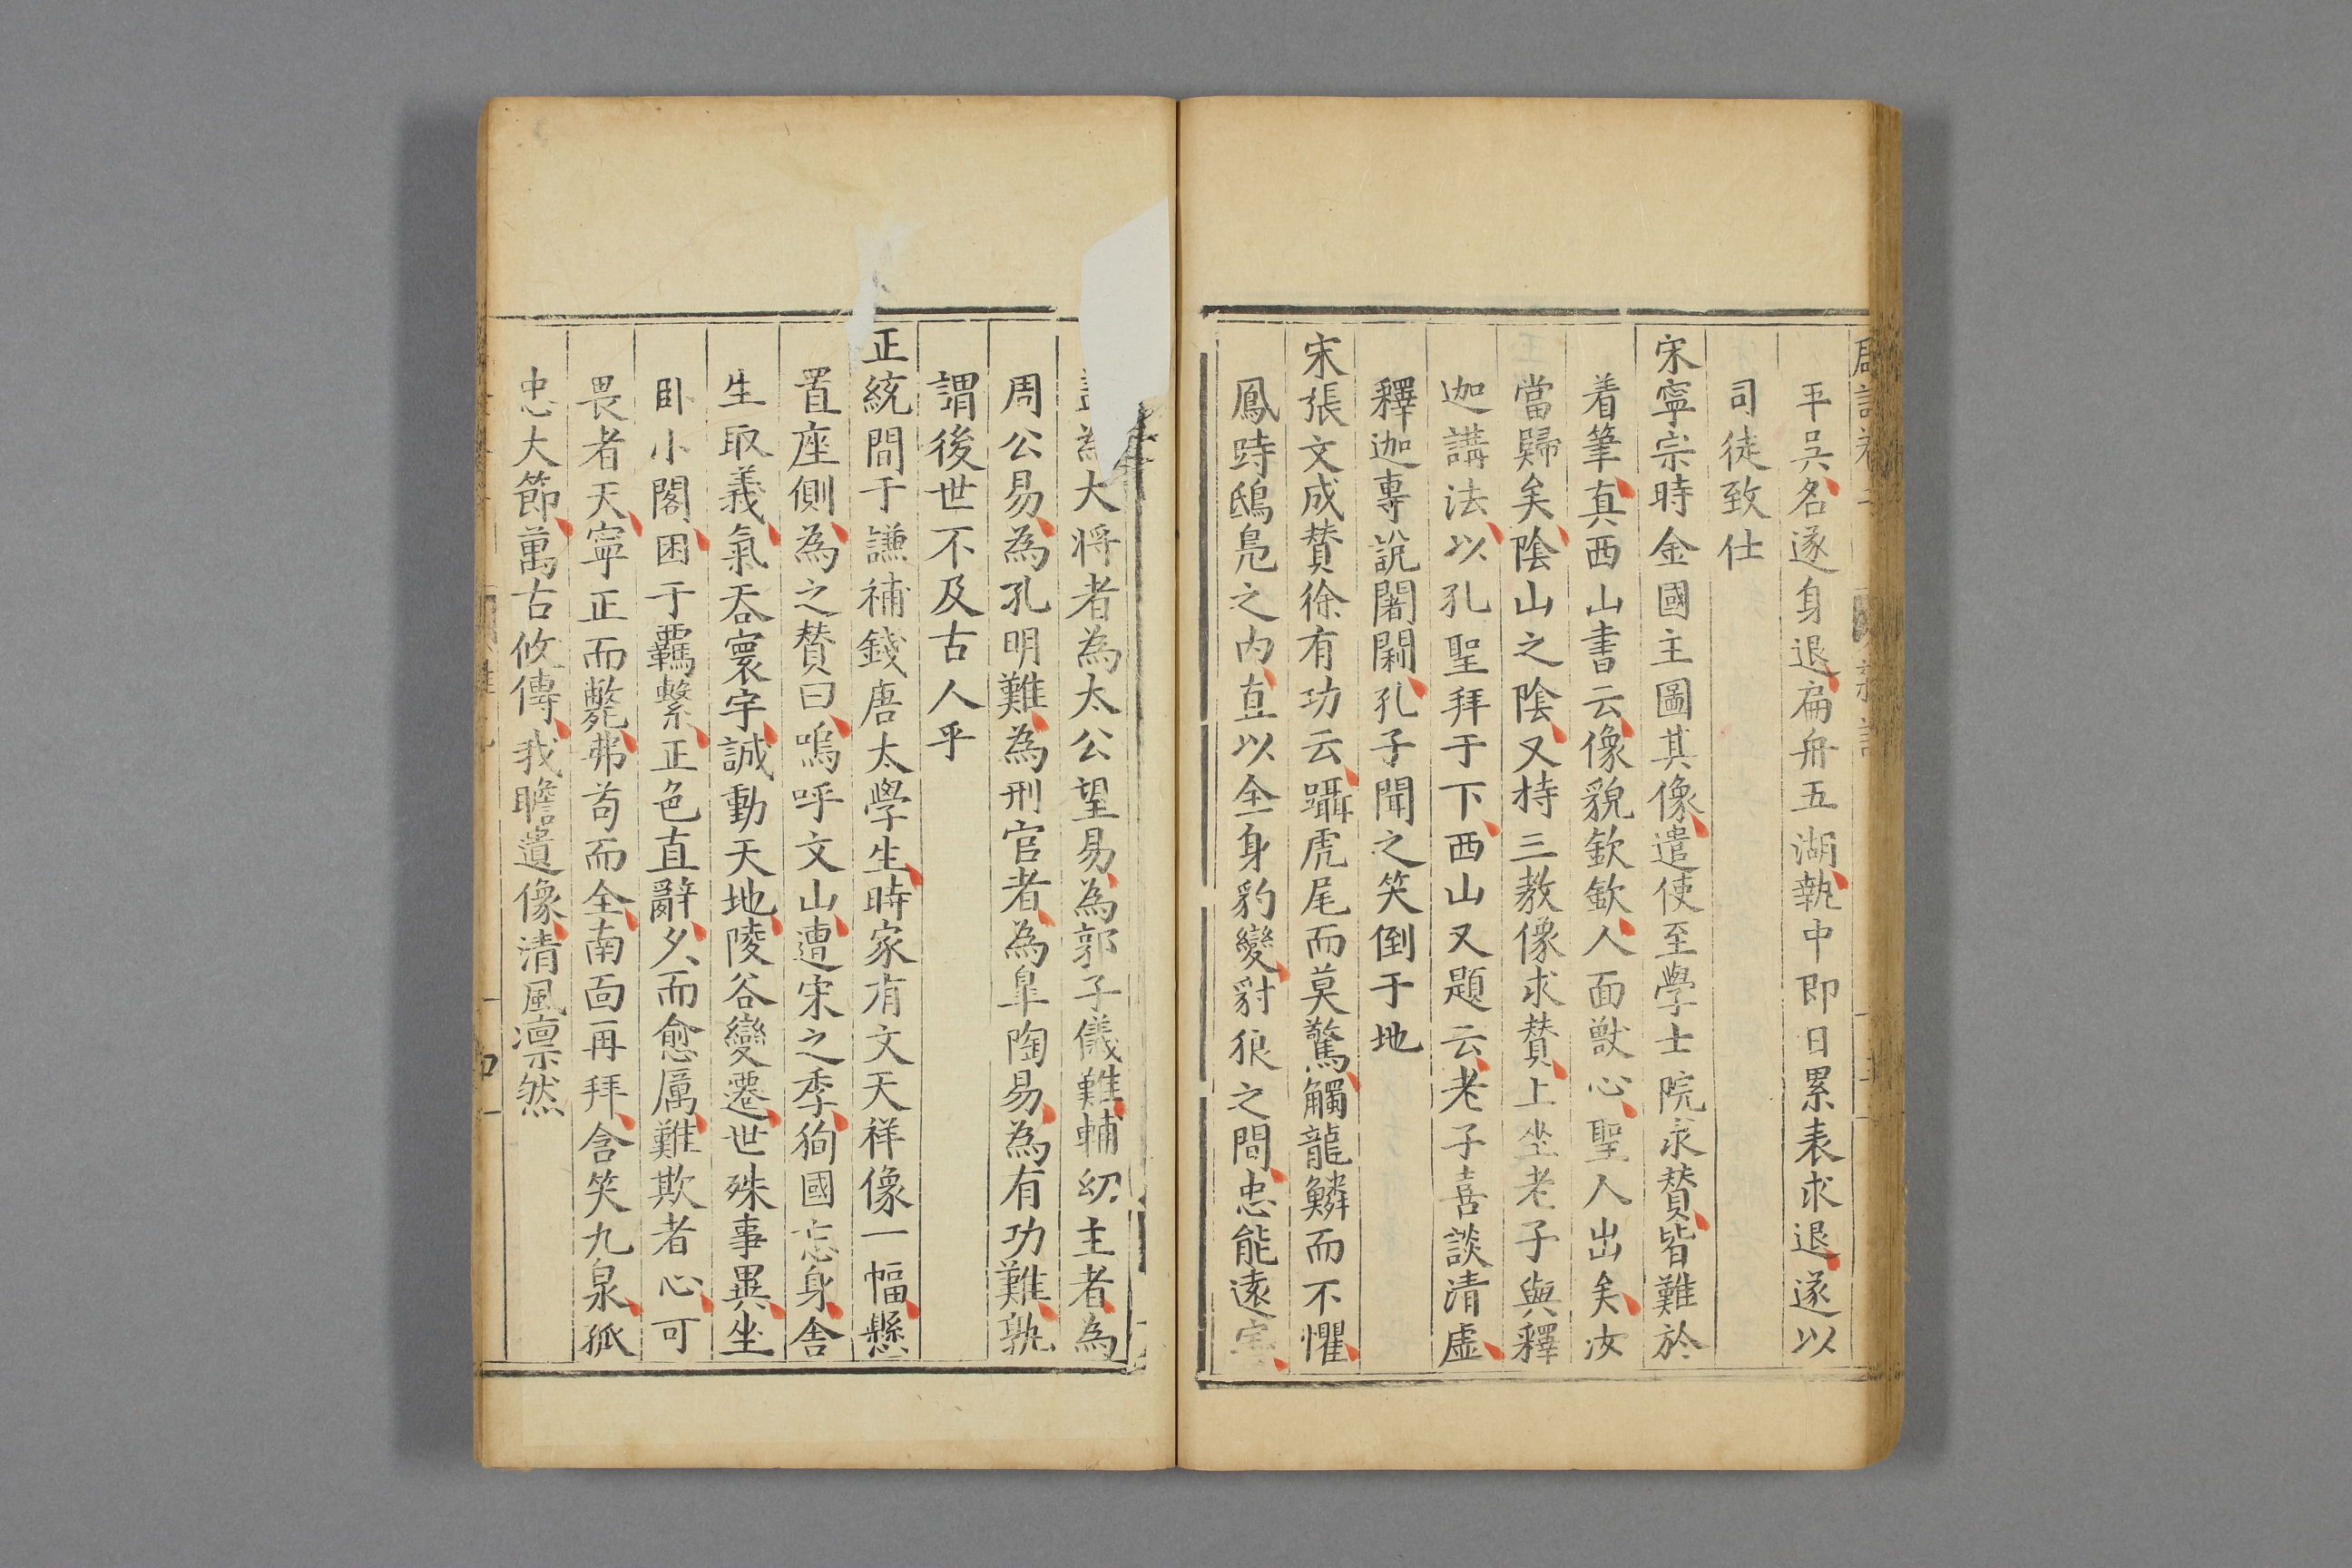 平吳名遂身退扁舟五湖執中即日累表求退遂以
司徒致仕
宋寧宗時金國主圖其像遣使至學士院求賛皆難於
着筆真西山書云像貌欽欽人面獸心聖人出矣汝
當歸矣陰山之陰又持三教像求賛上坐老子與釋
迦講法以孔聖拜于下西山又題云老子喜談清虛
釋迦專說闍閑孔子聞之笑倒于地
宋張文成賛徐有功云躡虎尾而莫驚觸龍鱗而不懼
鳳跱鴟梟之內直以全身豹變豺狼之間忠能遠害
大将者為太公望易為郭子儀難輔幼主者為
周公易為孔明難為刑官者為臯陶易為有功難孰
謂後世不及古人乎
正統間于謙補錢唐太學生時家有文天祥像一幅懸
置座側為之賛曰嗚呼文山遭宋之季狥國忘身舎
生取義氣吞寰宇誠動天地陵谷變遷世殊事異坐
卧小閣困于羈繫正色直辭久而愈厲難欺者心可
畏者天寧正而斃弗苟而全南向再拜含笑九泉孤
忠大節萬古攸傳我瞻遺像清風凛然